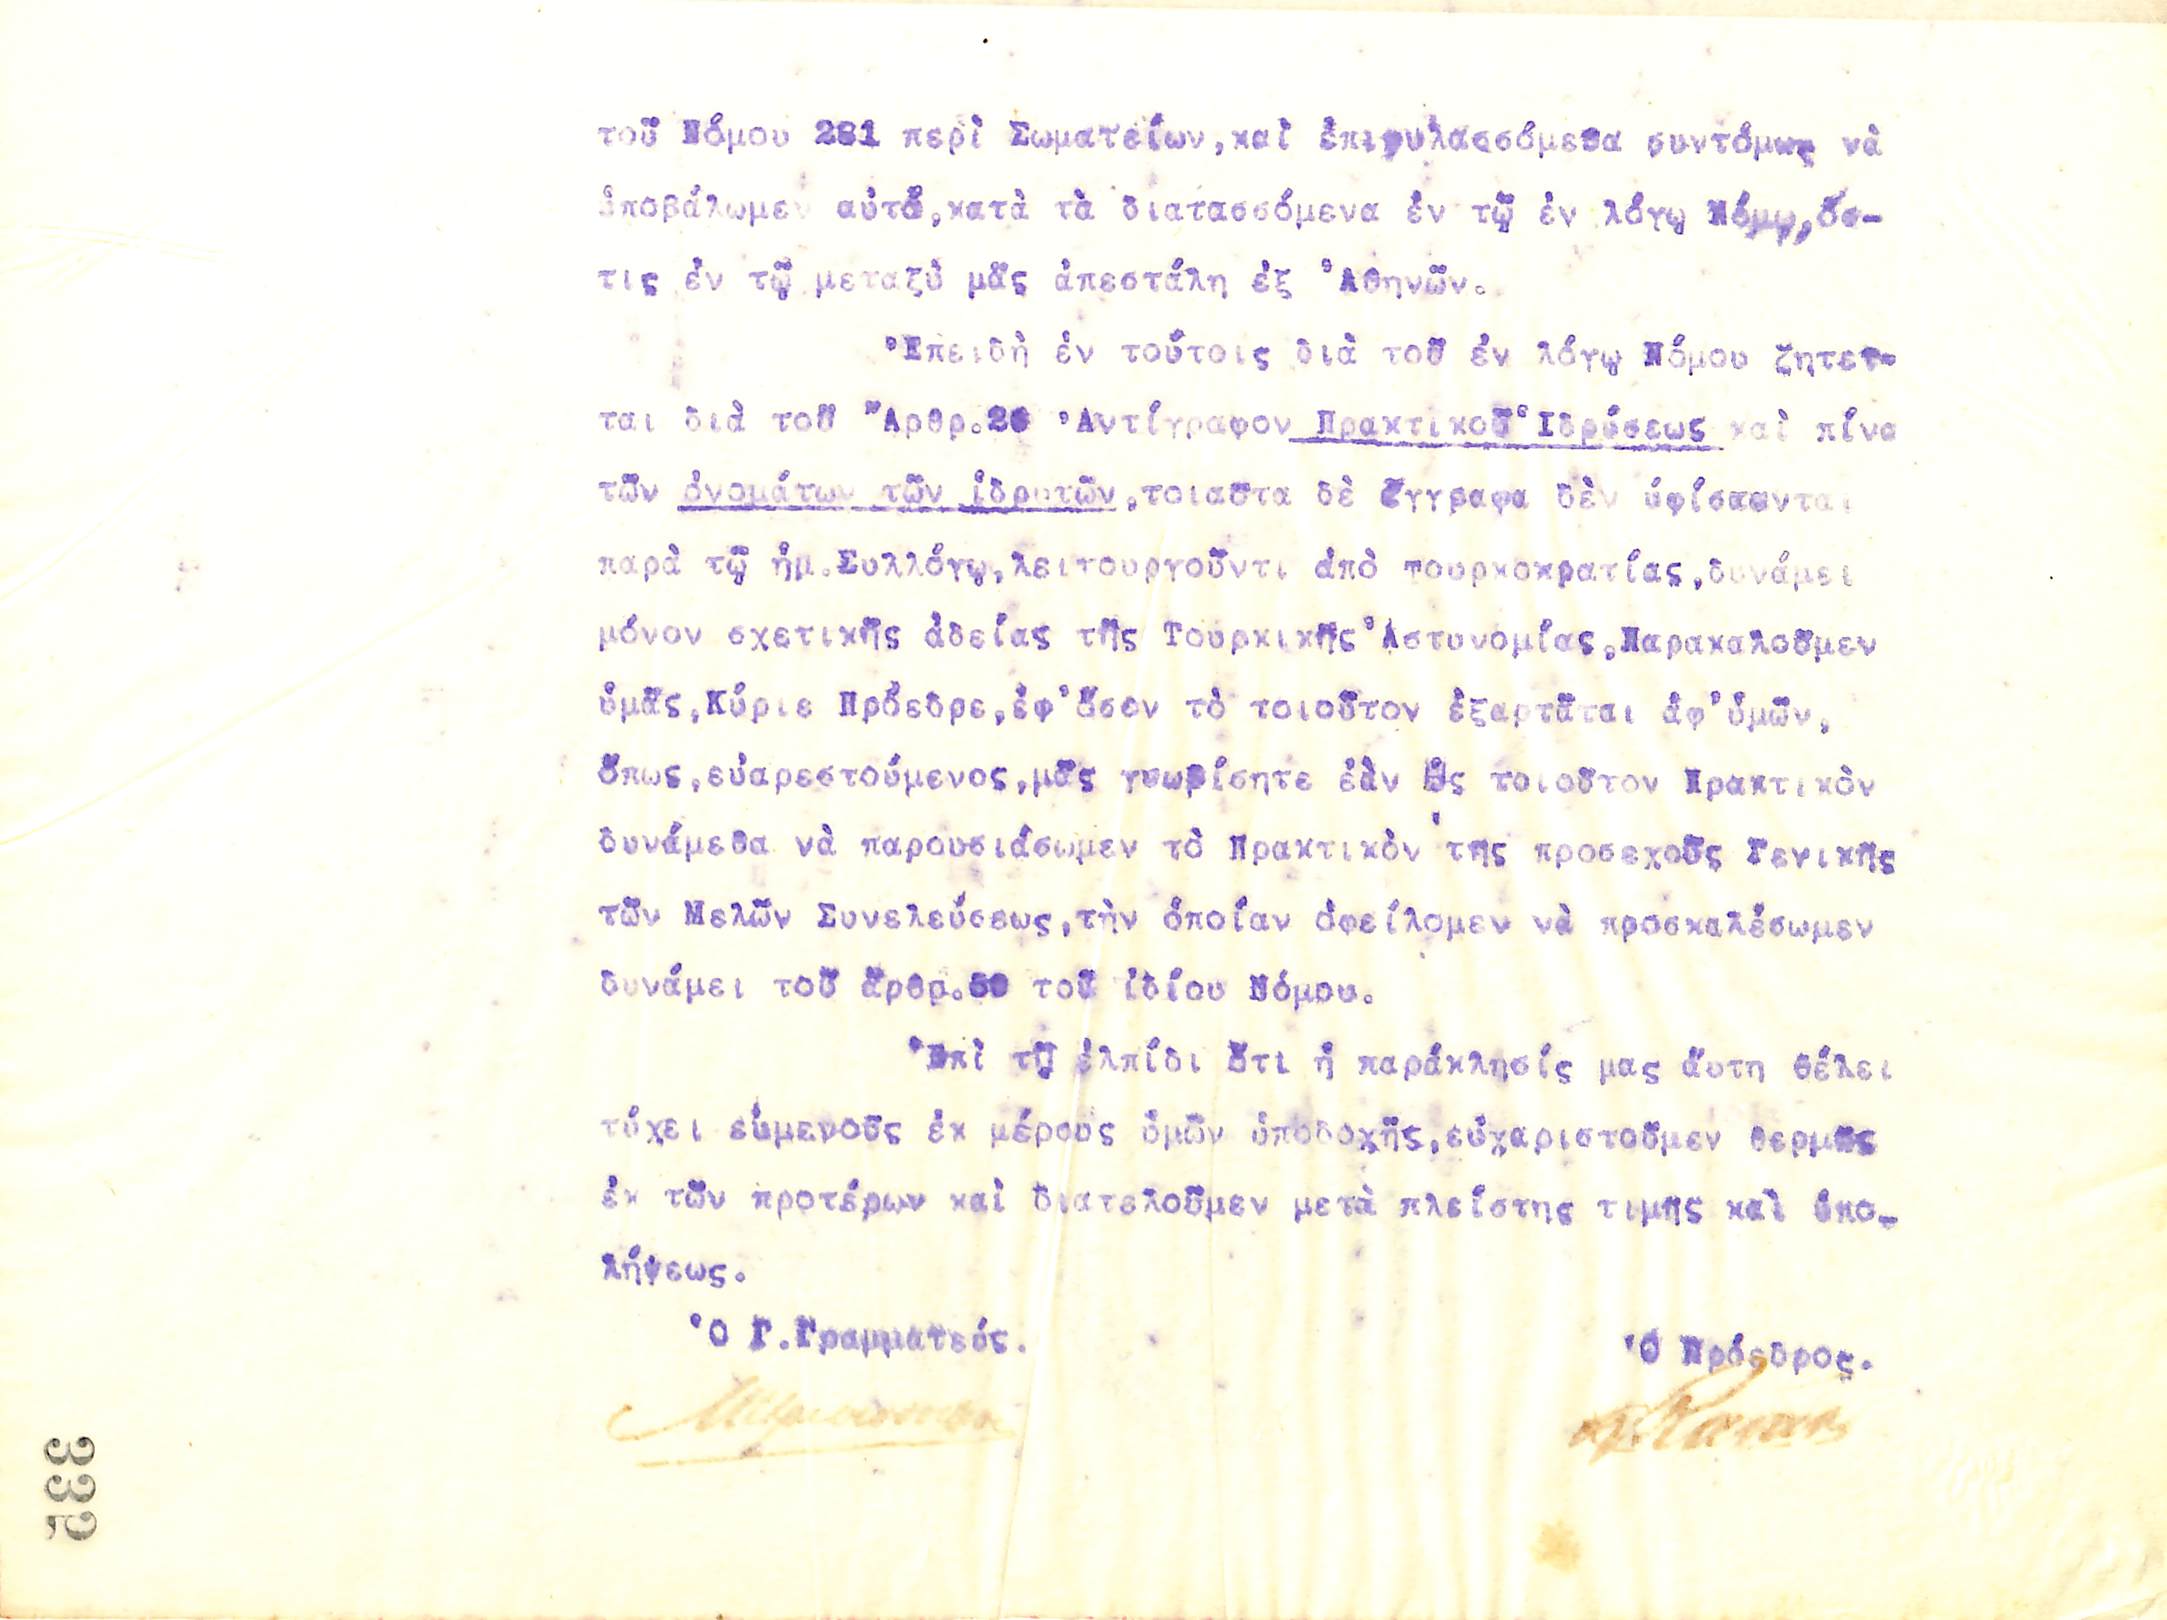 τοῦ Νόμου 281 περὶ Σωματείων, καὶ ἐπιφυλασσόμεθα συντόμως νὰ
ὑποβάλωμεν αὐτό, κατὰ τὰ διατασσόμενα ἐν τῷ ἐν λόγῳ Νόμῳ, ὅσ-
τις ἐν τῷ μεταξὺ μᾶς ἀπεστάλη ἐξ Ἀθηνῶν.
Ἐπειδὴ ἐν τούτοις διὰ τοῦ ἐν λόγῳ Νόμου ζητεῖ-
ται διὰ τοῦ Ἄρθρ. Ἀντίγραφον Πρακτικοῦ Ἱδρύσεως καὶ πίνα
τῶν ὀνομάτων τῶν ἱδρυτῶν, τοιαῦτα δὲ ἔγγραφα δὲν ὑφίσανται
παρὰ τῷ ἡμ. Συλλόγῳ, λειτουργοῦντι ἀπὸ τουρκοκρατίας, δυνάμει
μόνον σχετικῆς ἀδείας τῆς Τουρκικῆς Ἀστυνομίας, Παρακαλοῦμεν
ὑμᾶς, Κύριε Πρόεδρε, ἐφ' ὅσον τὸ τοιοῦτον ἐξαρτᾶται ἀφ' ὑμῶν,
ὅπως, εὐαρεστούμενος, μᾶς γνωρίσητε ἐὰν ὡς τοιοῦτον Πρακτικὸν
δυνάμεθα νὰ παρουσιάσωμεν τὸ Πρακτικὸν τῆς προσεχοῦς Γενικῆς
τῶν Μελῶν Συνελεύσεως, τὴν ὁποίαν ὀφείλομεν νὰ προσκαλέσωμεν
δυνάμει τοῦ ἄρθρ. τοῦ ἰδίου Νόμου.
Ἐπὶ τῇ ἐλπίδι ὅτι ἡ παράκλησίς μας αὕτη θέλει
τύχει εὐμενοῦς ἐκ μέρους ὑμῶν ὑποδοχῆς, εὐχαριστοῦμεν θερμῶς
ἐκ τῶν προτέρων καὶ διατελοῦμεν μετὰ πλείστης τιμῆς καὶ ὑπο-
λήψεως.
Ὁ Γ. Γραμματεύς.
Ὁ Πρόεδρος.
332